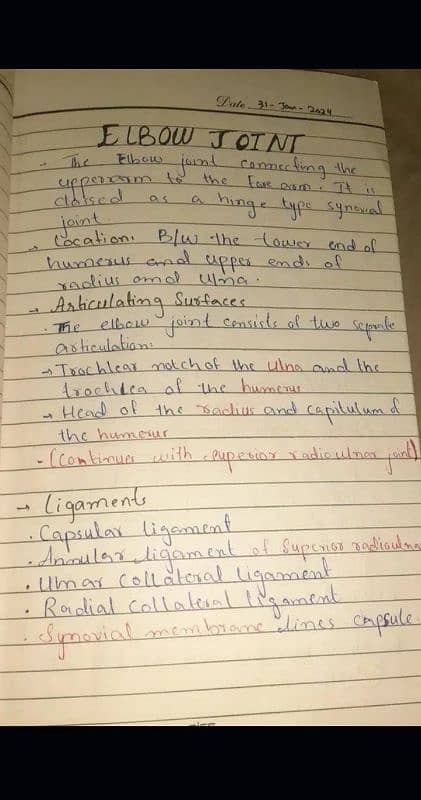 Date 31-Jan-2024
ELBOW JOINT
- The Elbow joint connecting the
upperarm to the fore arm. It is
clalssed as a hinge type synovial
joint
→ Location: B/w the lower end of
humerus and upper ends of
radius and ulna.
→ Articulating Surfaces
· The elbow joint consists of two seprate
articulation:
→ Trochlear notch of the ulna and the
trochlea of the humerus
→ Head of the radius and capitulum of
the humerus
- (Continues with superior radioulnar joint)
→ Ligaments
· Capsular ligament
· Annular ligament of Superior radioulna
· Ulnar Collateral ligament
· Radial Collateral ligament
· Synovial membrane lines capsule.